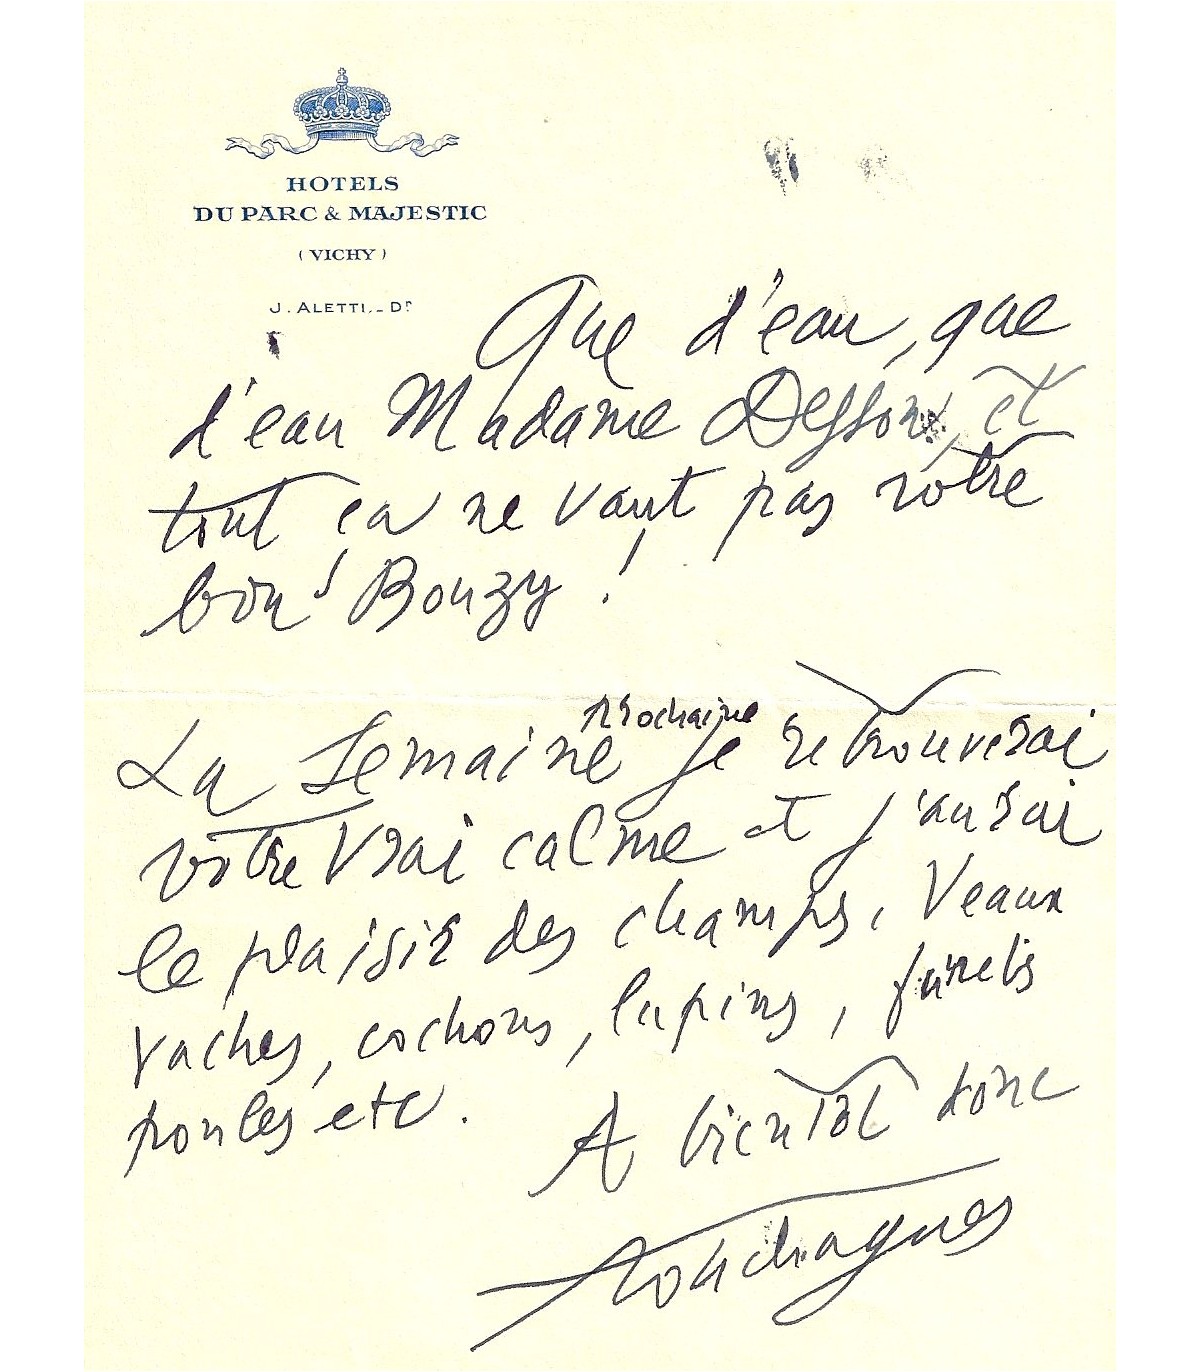 HOTELS
DU PARC & MAJESTIC
(VICHY)
J. ALETTI._ Dr
Que d'eau, que
d'eau Madame et
tout ca ne vaut pas votre
bon Bouzy !
prochaine
La Semaine je retrouverai
votre vrai calme et j'aurai
le plaisir des champs, Veaux
vaches, cochons, lapins, furets
poules etc.
A bientôt donc
Touchagues